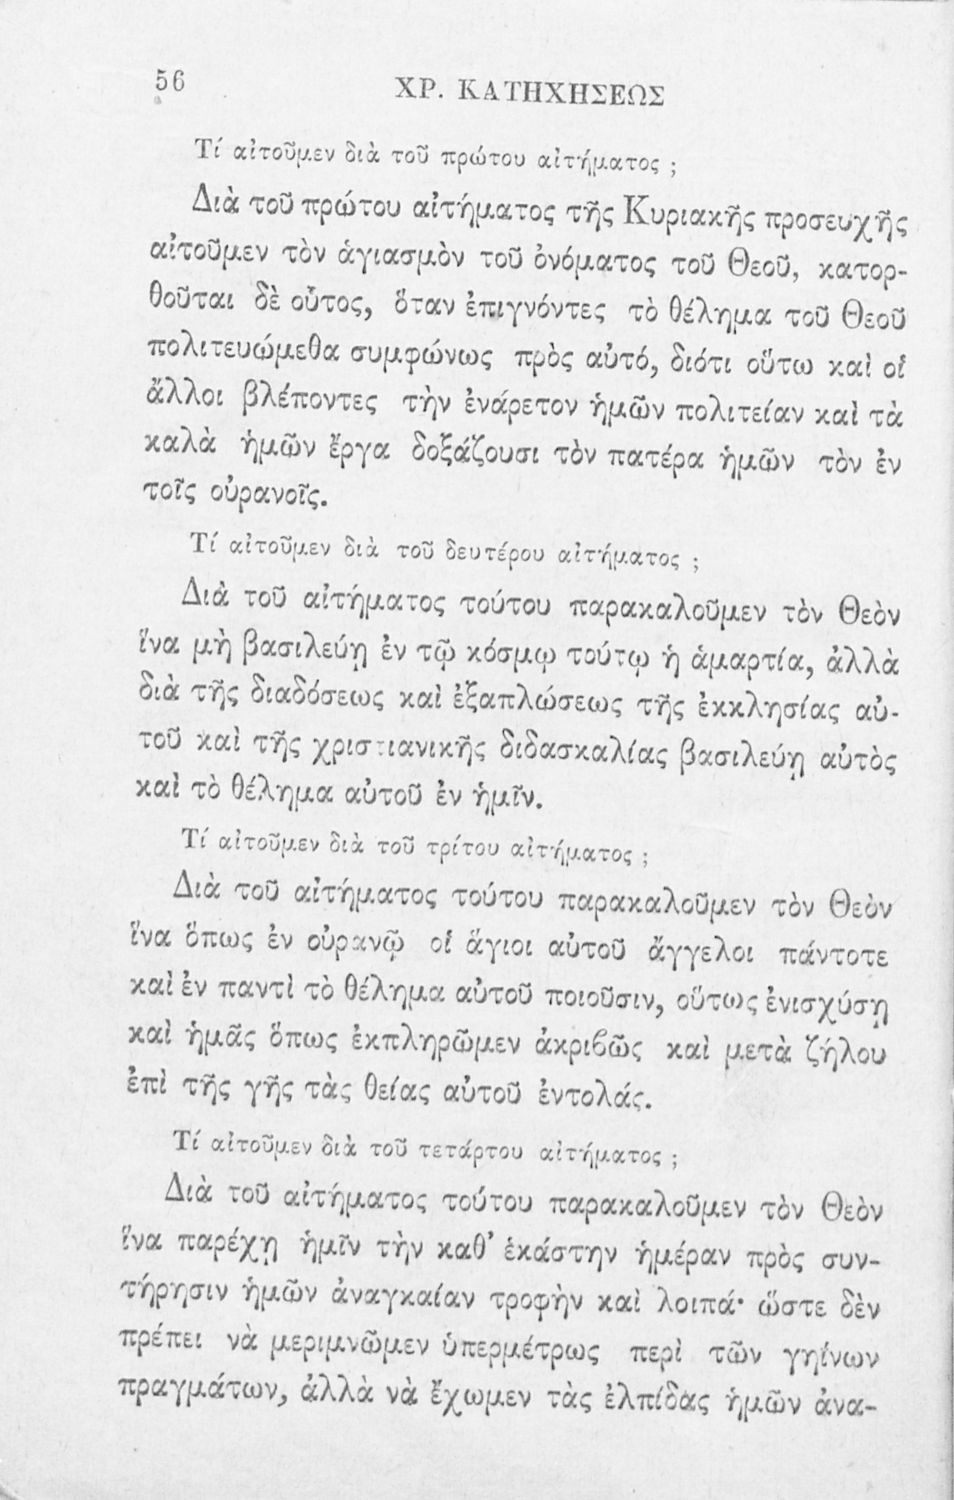 56
ΧΡ. ΚΑΤΗΧΗΣΕΩΣ
Τί αἰτοῦμεν διὰ τοῦ πρώτου αἰτήματος ;
Διὰ τοῦ πρώτου αἰτήματος τῆς Κυριακῆς προσευχῆς
αἰτοῦμεν τὸν ἁγιασμὸν τοῦ ὀνόματος τοῦ Θεοῦ, κατορ-
θοῦται δὲ οὗτος, ὅταν ἐπιγνόντες τὸ θέλημα τοῦ Θεοῦ
πολιτευώμεθα συμφώνως πρὸς αὐτό, διότι οὕτω καὶ οἱ
ἄλλοι βλέποντες τὴν ἐνάρετον ἡμῶν πολιτείαν καὶ τὰ
καλὰ ἡμῶν ἔργα δοξάζουσι τὸν πατέρα ἡμῶν τὸν ἐν
τοῖς οὐρανοῖς.
Τί αἰτοῦμεν διὰ τοῦ δευτέρου αἰτήματος ;
Διὰ τοῦ αἰτήματος τούτου παρακαλοῦμεν τὸν Θεὸν
ἵνα μὴ βασιλεύῃ ἐν τῷ κόσμῳ τούτῳ ἡ ἁμαρτία, ἀλλὰ
διὰ τῆς διαδόσεως καὶ ἐξαπλώσεως τῆς ἐκκλησίας αὐ-
τοῦ καὶ τῆς χριστιανικῆς διδασκαλίας βασιλεύῃ αὐτὸς
καὶ τὸ θέλημα αὐτοῦ ἐν ἡμῖν.
Τί αἰτοῦμεν διὰ τοῦ τρίτου αἰτήματος ;
Διὰ τοῦ αἰτήματος τούτου παρακαλοῦμεν τὸν Θεὸν
ἵνα ὅπως ἐν οὐρανῷ οἱ ἅγιοι αὐτοῦ ἄγγελοι πάντοτε
καὶ ἐν παντὶ τὸ θέλημα αὐτοῦ ποιοῦσιν, οὕτως ἐνισχύσῃ
καὶ ἡμᾶς ὅπως ἐκπληρῶμεν ἀκριβῶς καὶ μετὰ ζήλου
ἐπὶ τῆς γῆς τὰς θείας αὐτοῦ ἐντολάς.
Τί αἰτοῦμεν διὰ τοῦ τετάρτου αἰτήματος ;
Διὰ τοῦ αἰτήματος τούτου παρακαλοῦμεν τὸν Θεὸν
ἵνα παρέχῃ ἡμῖν τὴν καθ’ ἑκάστην ἡμέραν πρὸς συν-
τήρησιν ἡμῶν ἀναγκαίαν τροφὴν καὶ λοιπά· ὥστε δὲν
πρέπει νὰ μεριμνῶμεν ὑπερμέτρως περὶ τῶν γηΐνων
πραγμάτων, ἀλλὰ νὰ ἔχωμεν τὰς ἐλπίδας ἡμῶν ἀνα-